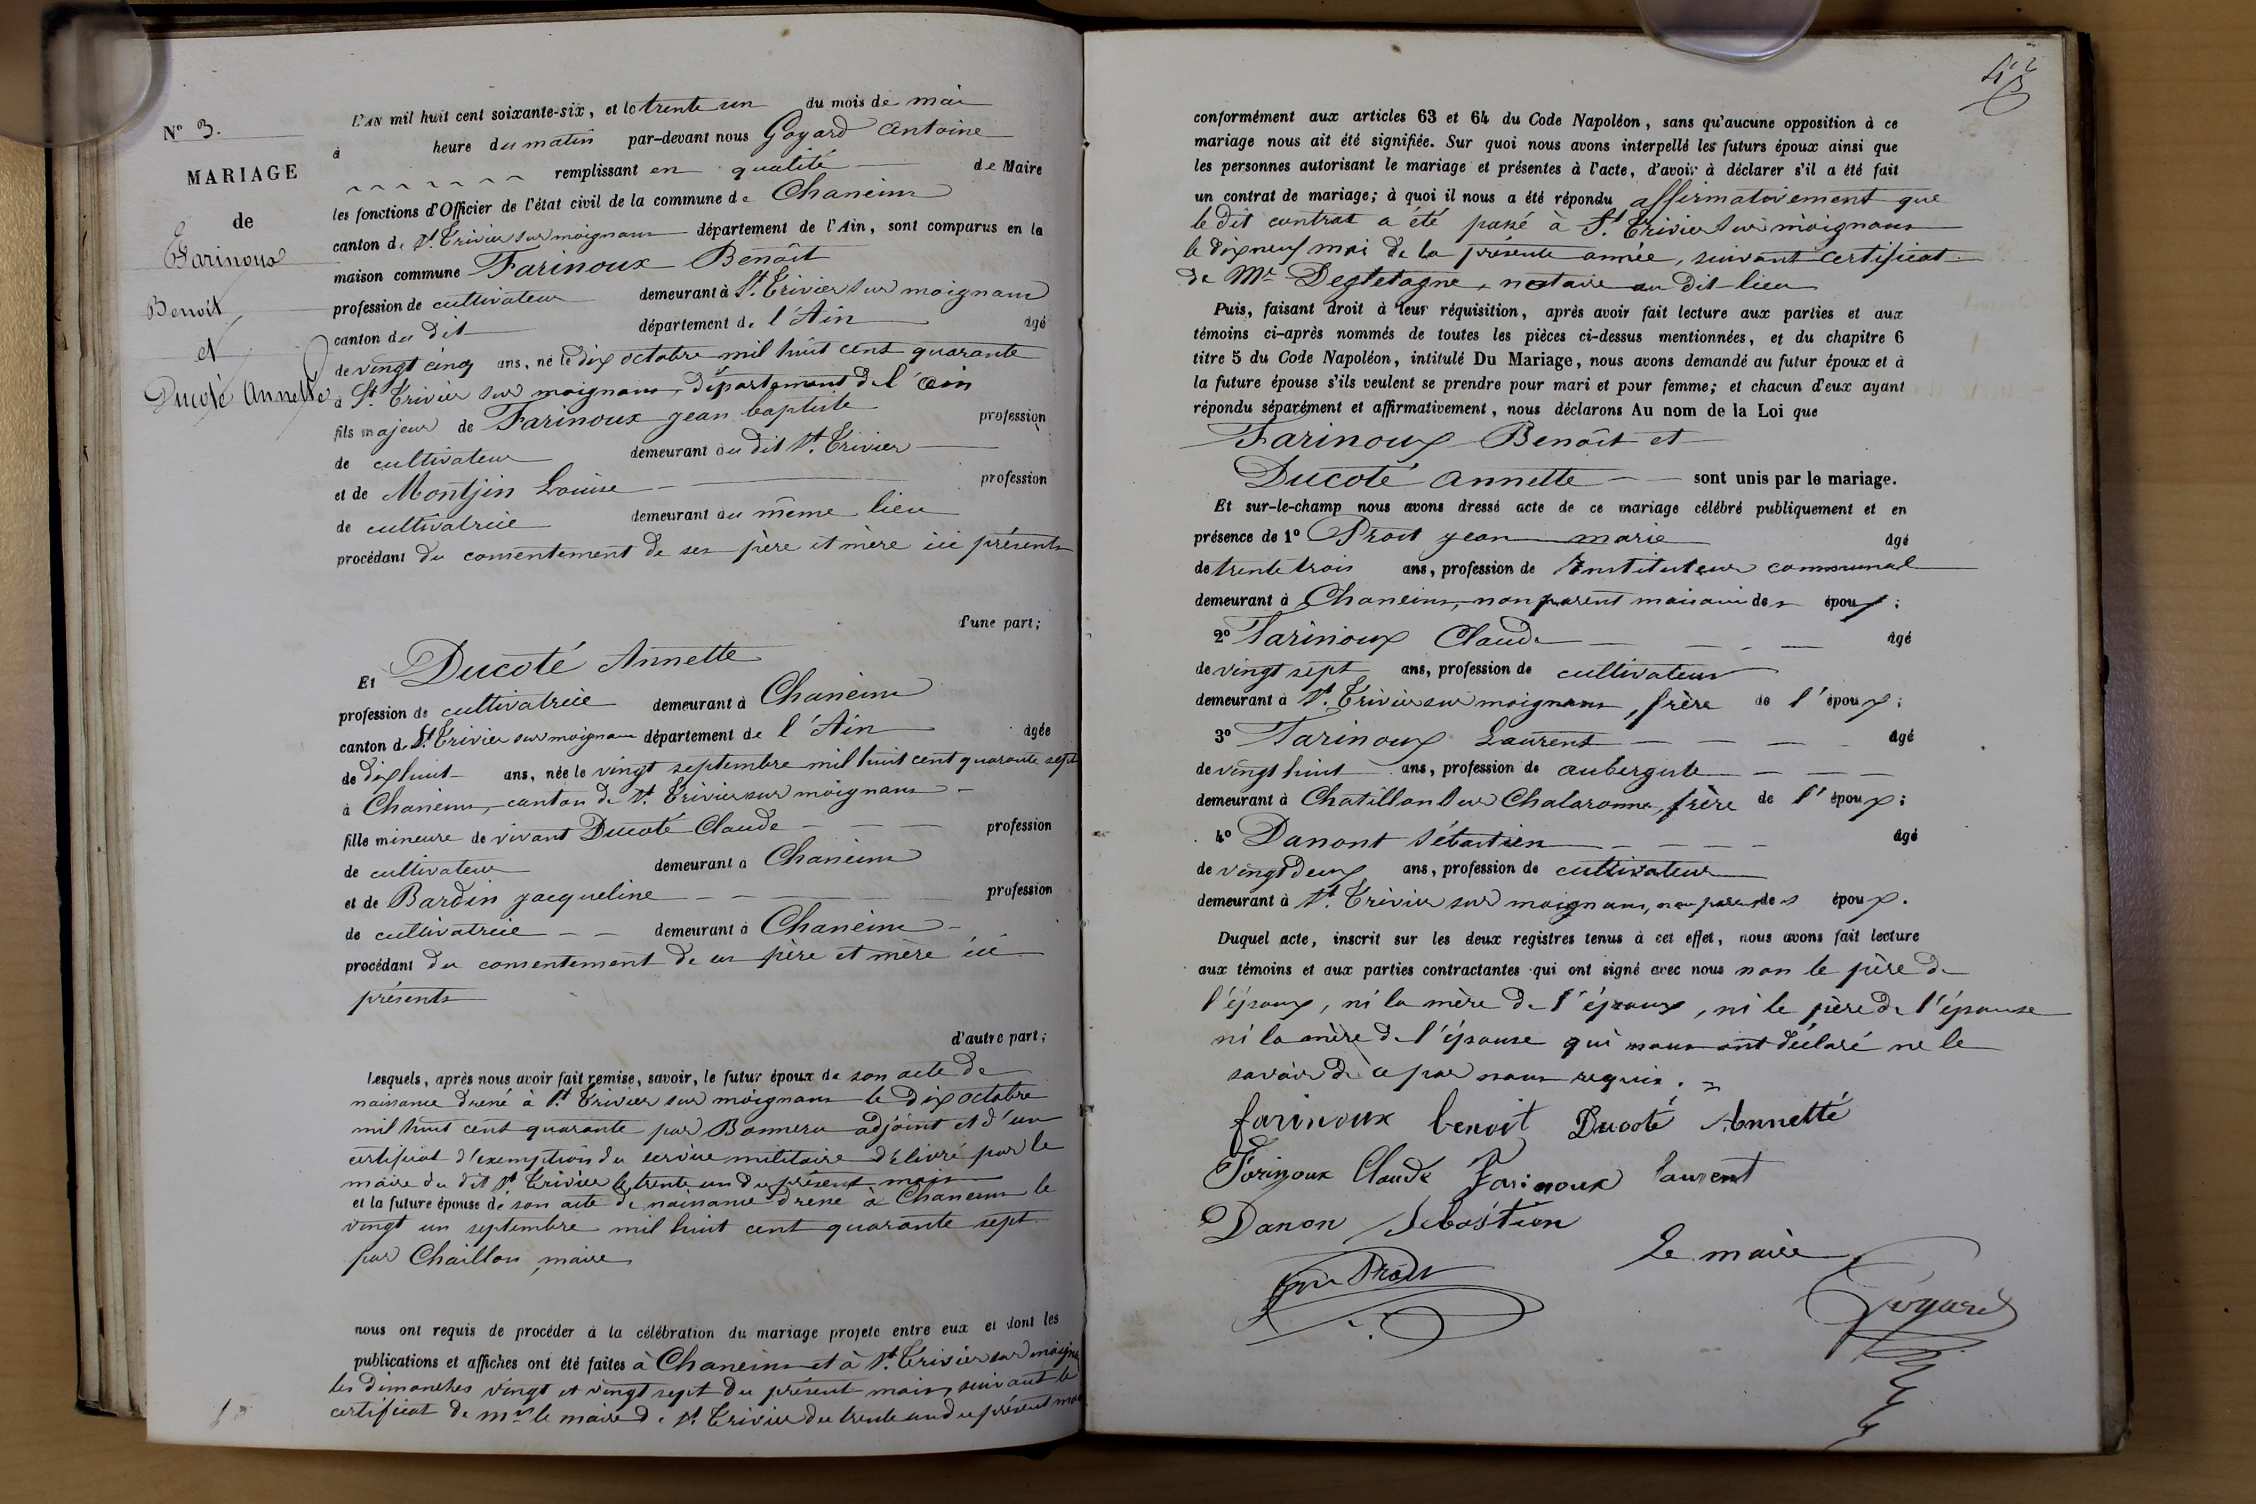 N° 3.
MARIAGE
de
Farinoux
Benoit
et
Ducoté Annette
L'AN mil huit cent soixante-six, et le trente un du mois de mai
à heure du matin par-devant nous Goyard Antoine
remplissant en qualité de Maire
les fonctions d'Officier de l'état civil de la commune de Chaneins
canton de St. Trivier sur moignans département de l'Ain, sont comparus en la
maison commune Farinoux Benoît
profession de cultivateur demeurant à St. Trivier sur moignans
canton du dit département de l'Ain âgé
de vingt cinq ans, né le dix octobre mil huit cent quarante
à St. Trivier sur moignans, département de l'ain
fils majeur de Farinoux jean baptiste profession
de cultivateur demeurant au dit St. Trivier
et de Montjin Louise profession
de cultivatrice demeurant au même lieu
procédant du consentement de ses père et mère ici présents
d'une part;
Et Ducoté Annette
profession de cultivatrice demeurant à Chaneins
canton de St Trivier sur moignans département de l'Ain âgée
de dix huit ans, née le vingt septembre mil huit cent quarante sept
à Chaneins, canton de St. Trivier sur moignans
fille mineure de vivant Ducoté Claude profession
de cultivateur demeurant à Chaneins
et de Bardin jacqueline profession
de cultivatrice demeurant à Chaneins
procédant du consentement de ses père et mère ici
présents
d'autre part;
Lesquels, après nous avoir fait remise, savoir, le futur époux de son acte de
naissance dressé à St. Trivier sur moignans le dix octobre
mil huit cent quarante par adjoint et d'un
certificat d'exemption du service militaire délivré par le
maire du dit St Trivier le trente un du présent mois
et la future épouse de son acte de naissance dressé à Chaneins le
vingt un septembre mil huit cent quarante sept
par Chaillou, maire
nous ont requis de procéder à la célébration du mariage projeté entre eux et dont les
publications et affiches ont été faites à Chaneins et à St. Trivier sur moignans
les dimanches vingt et vingt sept du présent mois, suivant le
certificat de mr le maire de St. Trivier du trente un du présent mois
conformément aux articles 63 et 64 du Code Napoléon, sans qu'aucune opposition à ce
mariage nous ait été signifiée. Sur quoi nous avons interpellé les futurs époux ainsi que
les personnes autorisant le mariage et présentes à l'acte, d'avoir à déclarer s'il a été fait
un contrat de mariage; à quoi il nous a été répondu affirmativement que
le dit contrat a été passé à St. Trivier sur moignans
le dix neuf mai de la présente année, suivant certificat
de Mr Degletagne, notaire au dit lieu
Puis, faisant droit à leur réquisition, après avoir fait lecture aux parties et aux
témoins ci-après nommés de toutes les pièces ci-dessus mentionnées, et du chapitre 6
titre 5 du Code Napoléon, intitulé Du Mariage, nous avons demandé au futur époux et à
la future épouse s'ils veulent se prendre pour mari et pour femme; et chacun d'eux ayant
répondu séparément et affirmativement, nous déclarons Au nom de la Loi que
Farinoux Benoît et
Ducoté annette sont unis par le mariage.
Et sur-le-champ nous avons dressé acte de ce mariage célébré publiquement et en
présence de 1° Proit jean marie âgé
de trente trois ans, profession de Instituteur communal
demeurant à Chaneins, non parent mais ami des époux;
2° Farinoux Claude âgé
de vingt sept ans, profession de cultivateur
demeurant à St. Trivier sur moignans, frère de l'époux;
3° Farinoux Laurent âgé
de vingt huit ans, profession de aubergiste
demeurant à Chatillon sur Chalaronne, frère de l'époux;
4° Danont Sébastien âgé
de vingt deux ans, profession de cultivateur
demeurant à St. Trivier sur moignans, non parent des époux.
Duquel acte, inscrit sur les deux registres tenus à cet effet, nous avons fait lecture
aux témoins et aux parties contractantes qui ont signé avec nous non le père de
l'époux, ni la mère de l'époux, ni le père de l'épouse
ni la mère de l'épouse qui nous ont déclaré ne le
savoir de ce par nous requis.
farinoux benoit Ducoté Annetté
Farinoux Claude Farinoux laurent
Danon Sebastien
Le maire
Goyard